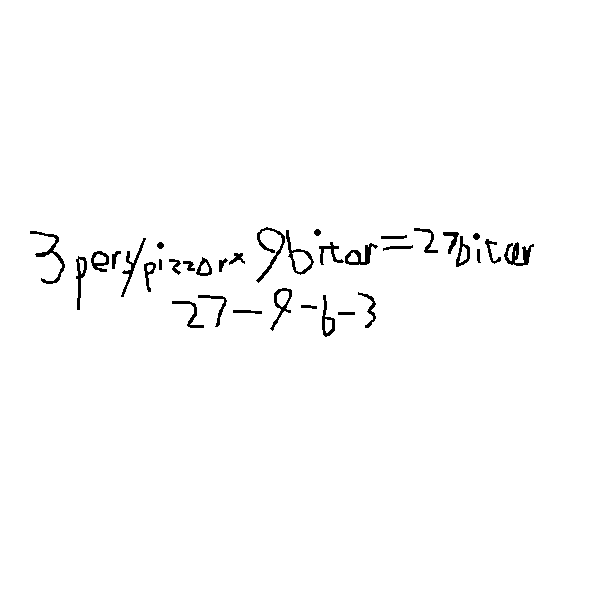 3 pers/pizzor * 9 bitar = 27 bitar
27 - 9 - 6 - 3